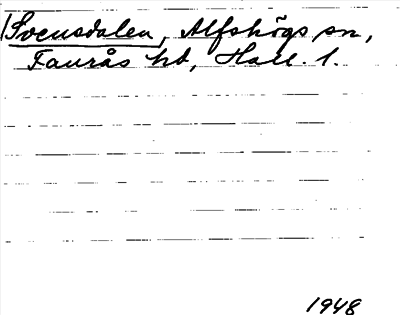 Svensdalen, Alfshögs sn,
Faurås hd, Hall. l.
1948